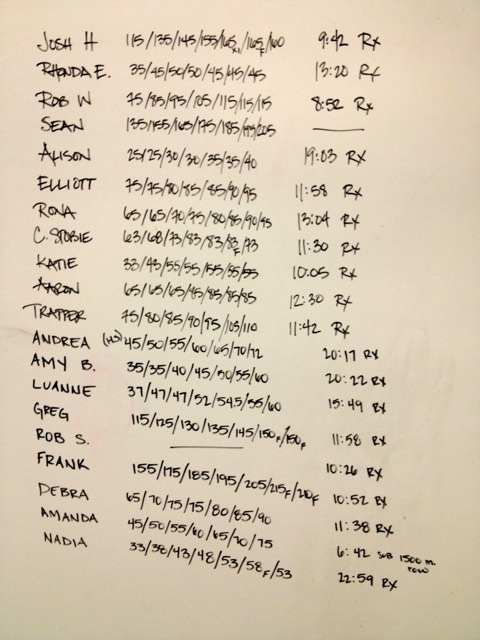 JOSH H 115/135/145/155/165x1/165F/160 9:42 RX
RHONDA E. 35/45/50/50/45/45/45 13:20 RX
ROB W 75/85/95/105/115/115/115 8:52 RX
SEAN 135/155/165/175/185/195/205 —
ALISON 25/25/30/30/35/35/40 19:03 RX
ELLIOTT 75/75/80/85/85/90/95 11:58 RX
RONA 65/65/70/75/80/85/90/95 13:04 RX
C. STOBIE 63/68/73/83/83/83F/73 11:30 RX
KATIE 33/43/55/55/55/55/55 10:05 RX
AARON 65/65/65/85/85/85/85 12:30 RX
TRAPPER 75/80/85/90/95/105/110 11:42 RX
ANDREA (HS) 45/50/55/60/65/70/72 20:17 RX
AMY B. 35/35/40/45/50/55/60 20:22 RX
LUANNE 37/47/47/52/54.5/55/60 15:49 RX
GREG 115/125/130/135/145/150F/150F 11:58 RX
ROB S. — 10:26 RX
FRANK 155/175/185/195/205/215F/210F 10:52 RX
DEBRA 65/70/75/75/80/85/90 11:38 RX
AMANDA 45/50/55/60/65/70/75 6:42 SUB 1500 m. ROW
NADIA 33/38/43/48/53/58F/53 22:59 RX